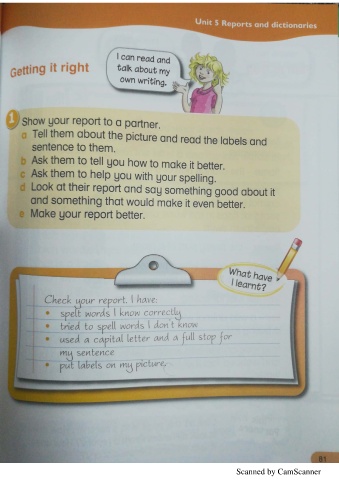 Unit 5 Reports and dictionaries
Getting it right
I can read and
talk about my
own writing.
1 Show your report to a partner.
a Tell them about the picture and read the labels and
sentence to them.
b Ask them to tell you how to make it better.
c Ask them to help you with your spelling.
d Look at their report and say something good about it
and something that would make it even better.
e Make your report better.
What have
I learnt?
Check your report. I have:
• spelt words I know correctly
• tried to spell words I don't know
• used a capital letter and a full stop for
my sentence
• put labels on my picture.
81
Scanned by CamScanner